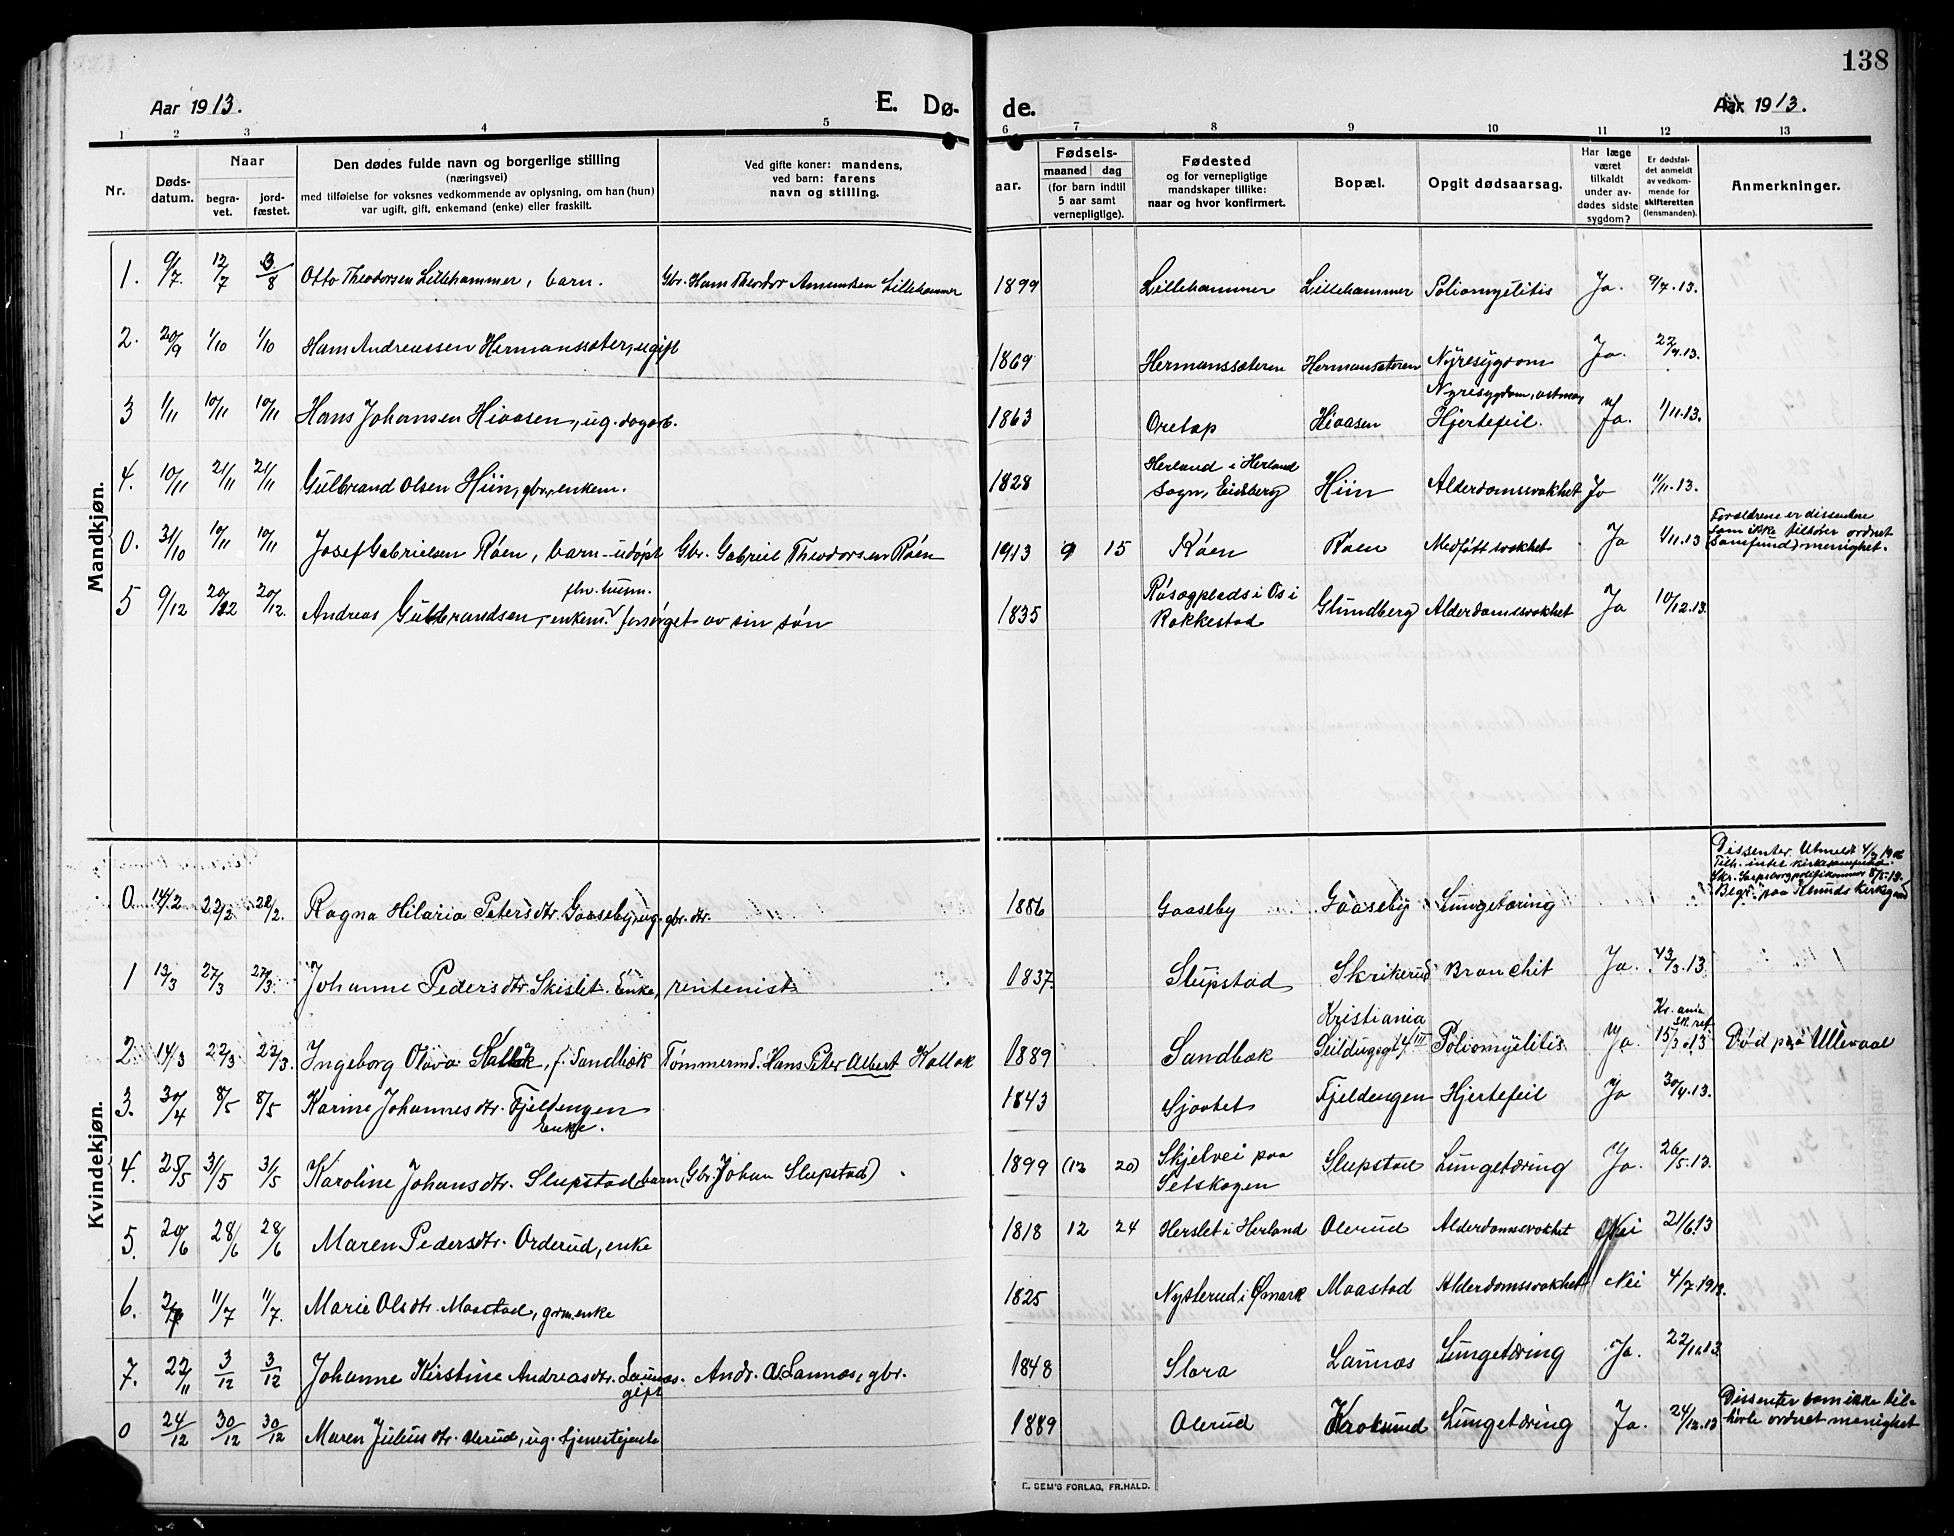 138
Aar 1913.
E. Dø-
de.
Aar 1913.
1 2 3 4 5 6 7 8 9 10 11 12 13
Nr.
Døds-
datum.
Naar
begra-
vet.
jord-
fæstet.
Den dødes fulde navn og borgerlige stilling
(næringsvei)
med tilføielse for voksnes vedkommende av oplysning, om han (hun)
var ugift, gift, enkemand (enke) eller fraskilt.
Ved gifte koner: mandens,
ved barn: farens
navn og stilling.
aar.
Fødsels-
maaned dag
(for barn indtil
5 aar samt
vernepligtige).
Fødested
og for vernepligtige
mandskaper tillike:
naar og hvor konfirmert.
Bopæl.
Opgit dødsaarsag.
Har læge
været
tilkaldt
under av-
dødes sidste
sygdom?
Er dødsfal-
det anmeldt
av vedkom-
mende for
skifteretten
(lensmanden).
Anmerkninger.
Mandkjøn.
1. 9/7. 12/7 3/8 Otto Theodorsen Lillehammer, barn. Gbr. Hans Theodor Amundsen Lillehammer 1899 Lillehammer Lillehammer Poliomyelitis Ja. 9/7.13.
2. 20/9 1/10 1/10 Hans Andreassen Hermanssæter, ugift 1869 Hermanssæteren Hermansæteren Nyresygdom Ja. 22/9.13.
Nyresygdom, astma,
3 1/11 10/11 10/11 Hans Johansen Hiaasen, ug. dagarb. 1863 Oretap Hiaasen Hjertefeil. Ja. 1/11.13.
Herland i Herland
4. 10/11 21/11 21/11 Gulbrand Olsen Hiin, gbr., enkem. 1828 Sogn, Eidsberg Hiin Alderdomssvakhet Ja 11/11.13.
Forældrene er dissentere
som ikke tilhører ordnet
0. 31/10 10/11 10/11 Josef Gabrielsen Røen, barn - udøpt Gbr. Gabriel Theodorsen Røen 1913 9 15 Røen Røen Medfött svakhet Ja 1/11.13 (samfund) menighet.
flv. husm.
Røsægplads i Os i
5 9/12 20/12 20/12. Andreas Gulbrandsen, enkem. forsørget av sin søn 1835 Rakkestad Glundberg Alderdomssvakhet Ja 10/12.13.
Kvindekjøn.
Dissenter. Utmeldt 4/3 1906
Tilh. intet kirkesamfund.
Skr. Sarpsborg politikammer 8/5-13.
Begr. paa Klunds kirkegaard
0. 14/2 22/2 22/2. Ragna Hilaria Petersdtr. Gaaseby, ug. gbr. dtr. 1886 Gaaseby Gaaseby Lungetæring
1 13/3 27/3 27/3. Johanne Pedersdtr. Skislet. Enke, rentenist 1837. Slupstad Skrikerud Bronchit Ja. 13/3.13
Kristiania
Kr.ania
sk. ret
2 14/3 22/3 22/3. Ingeborg Olava Kallak, f. Sandbæk Tømmermd. Hans Peter Albert Kallak 1889 Sandbæk Seildugsgt. 4 III Poliomyelitis Ja. 15/3.13 Død på Ullevaal
3. 30/4 8/5 8/5 Karine Johannesdtr. Fjeldengen 1843 Sjøvtet Fjeldengen Hjertefeil Ja 30/4.13.
Enke.
4. 25/5 31/5 31/5 Karoline Johansdtr. Slupstad barn (Gbr. Johan Slupstad) 1899 (12 20) Skjelvei paa Slupstad Lungetæring Ja. 26/5.13.
Setskogen
5. 20/6 28/6 28/6 Maren Pedersdtr. Orderud, enke 1818 12 24 Herslet i Herland Olerud Alderdomssvakhet Nei 21/6.13
6. 2/7 11/7 11/7. Marie Olsdtr. Maastad, grm. enke 1825 Nysterud i Ømark Maastad Alderdomssvakhet Nei 4/7.1913.
7. 22/11 3/12 3/12 Johanne Kirstine Andreasdtr. Launæs. Andr. O. Launæs, gbr. 1848 Slora Launæs Lungetæring Ja. 22/11.13
gift
Dissenter som ikke til-
0 24/12 30/12 30/12 Maren Juliusdtr. Olerud, ug. tjenestejente 1889 Olerud Kroksund Lungetæring Ja. 24/12.13 hörte ordnet menighet
E. SEM'S FORLAG, FR.HALD.